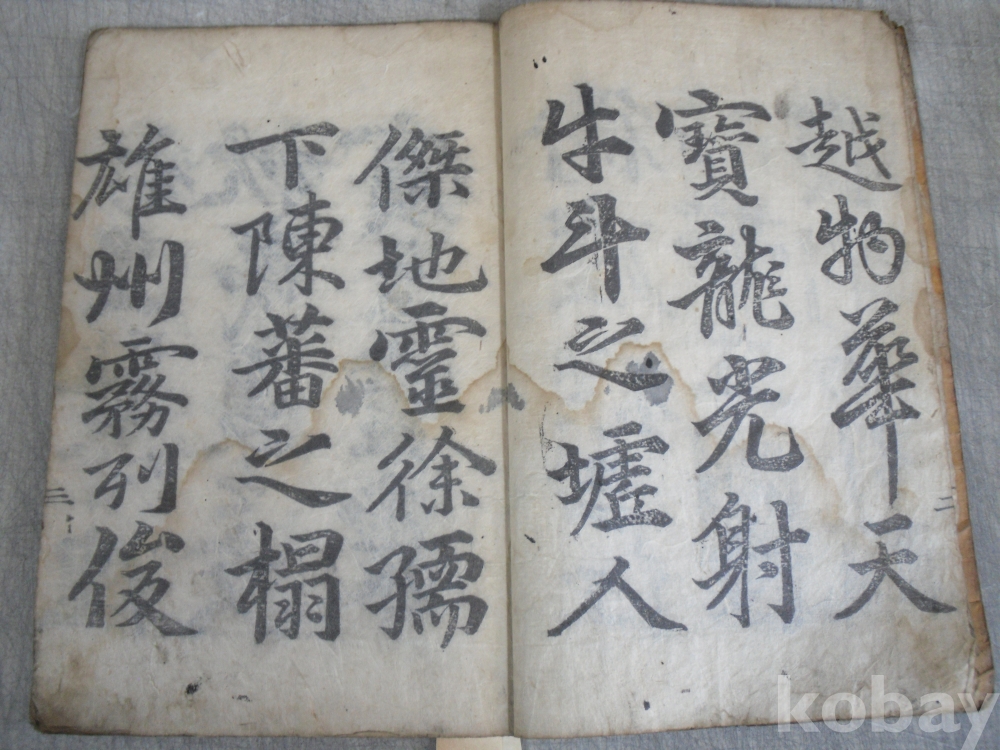 越物華天
寶龍光射
牛斗之墟人
傑地靈徐孺
下陳蕃之榻
雄州霧列俊
二
三
kobay